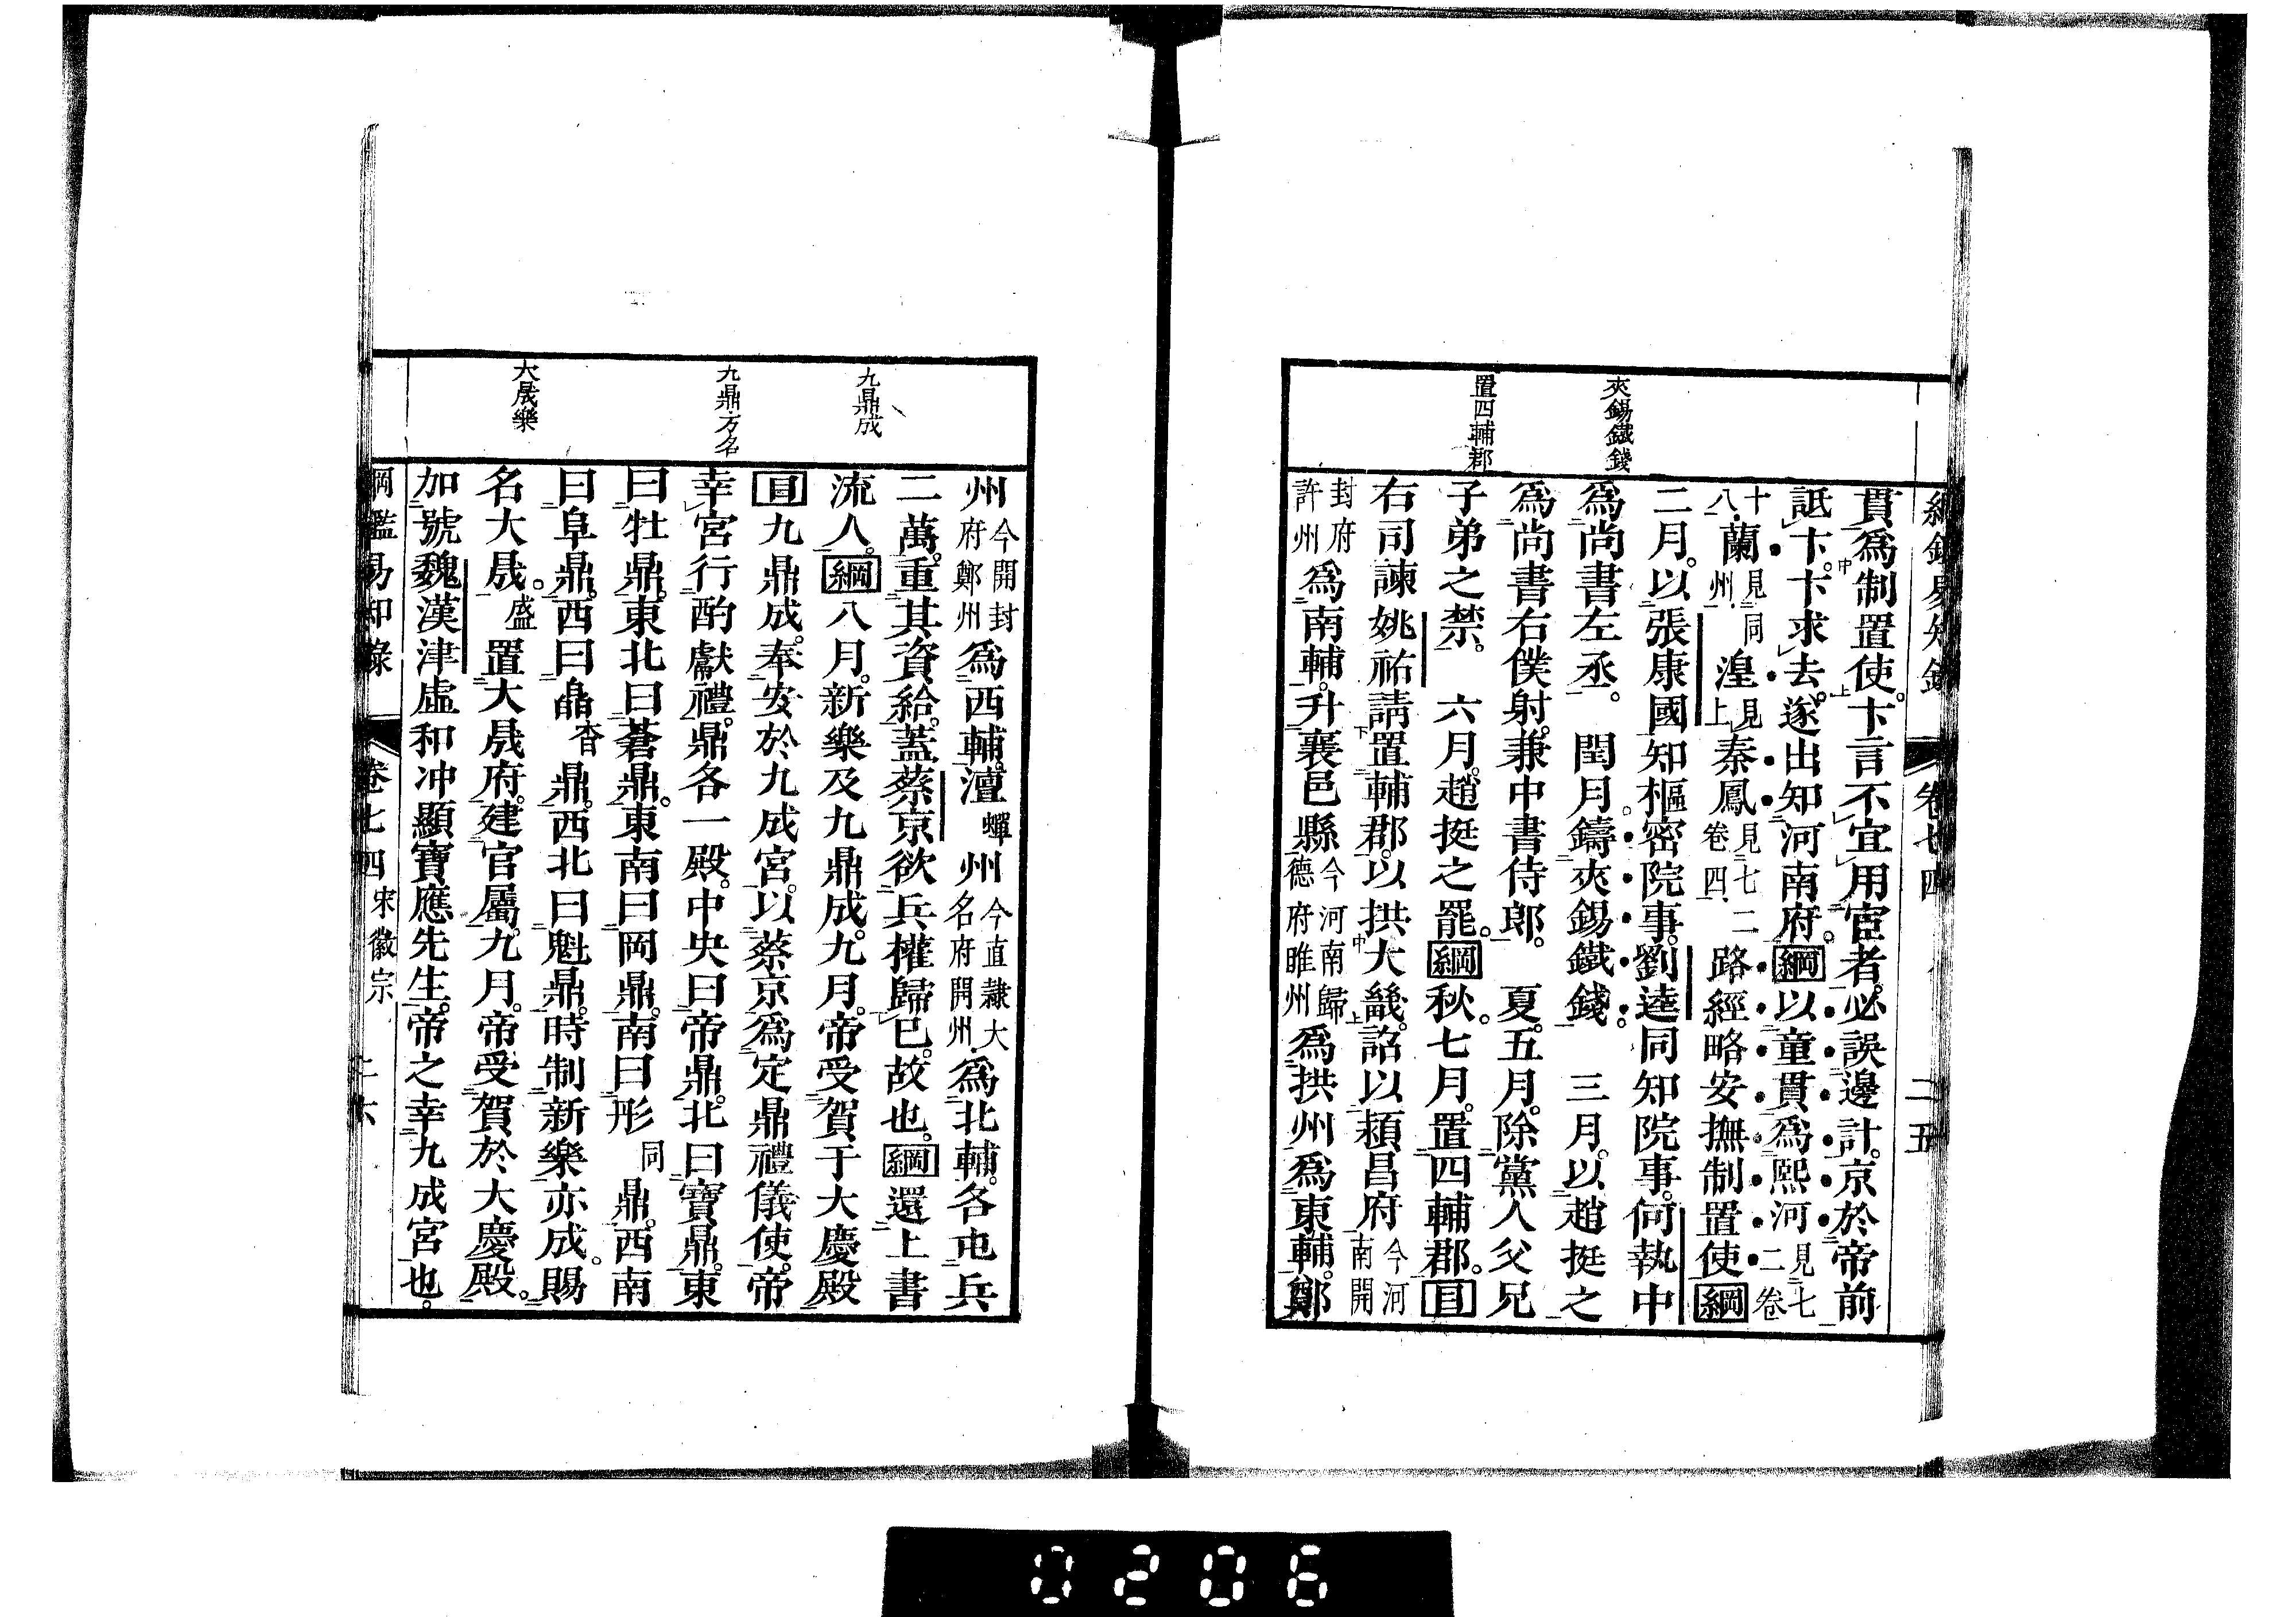 夾錫鐵錢
置四輔郡
貫爲制置使。卞言不宜用宦者。必誤邊計。京於帝前
詆卞。卞求去。遂出知河南府。綱以童貫爲熙河見七二卷
十八蘭見同州湟見上秦鳳見七二卷四路經略安撫制置使綱
二月。以張康國知樞密院事。劉逵同知院事。何執中
爲尚書左丞。閏月。鑄夾錫鐵錢。三月。以趙挺之
爲尚書右僕射。兼中書侍郎。夏。五月。除黨人父兄
子弟之禁。六月。趙挺之罷。綱秋。七月。置四輔郡。目
右司諫姚祐請置輔郡。以拱大畿。詔以頴昌府今河南開
封府許州爲南輔。升襄邑縣今河南歸德府睢州爲拱州爲東輔。鄭
卷七四
二五
九鼎成
九鼎方名
大晟樂
州今開封府鄭州爲西輔。澶蟬州今直隷大名府開州爲北輔。各屯兵
二萬。重其資給。蓋蔡京欲兵權歸已。故也。綱還上書
流人。綱八月。新樂及九鼎成。九月。帝受賀于大慶殿
目九鼎成。奉安於九成宮。以蔡京爲定鼎禮儀使。帝
幸宮行酌獻禮。鼎各一殿。中央曰帝鼎。北曰寶鼎。東
曰牡鼎。東北曰蒼鼎。東南曰岡鼎。南曰形同鼎。西南
曰阜鼎。西曰皛杳鼎。西北曰魁鼎。時制新樂亦成。賜
名大晟。盛置大晟府。建官屬。九月。帝受賀於大慶殿。
加號魏漢津虛和冲顯寶應先生。帝之幸九成宮也。
綱鑑易知錄
卷七四宋徽宗
二六
0206